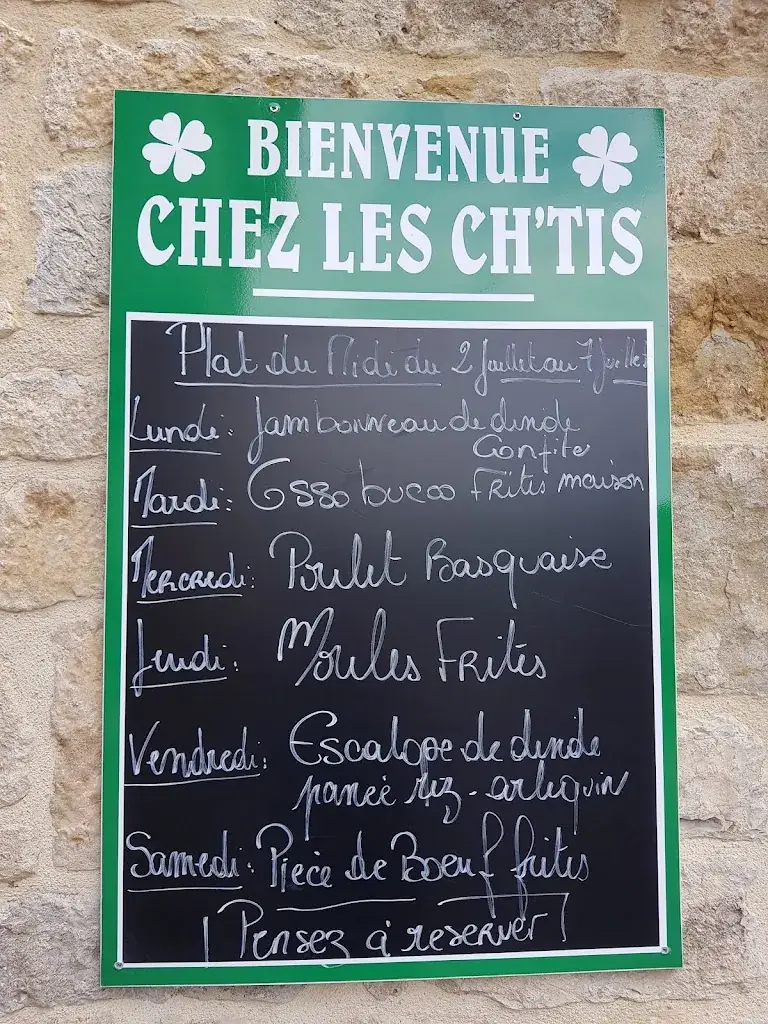 BIENVENUE
CHEZ LES CH'TIS
Plat du Midi du 2 Juillet au 7 Juillet
Lundi: Jambonneau de dinde
Confite
Mardi: Osso bucco Frites maison
Mercredi: Poulet Basquaise
Jeudi: Moules Frites
Vendredi: Escalope de dinde
panée riz-arlequin
Samedi: Pièce de Boeuf frites
Pensez à reserver!